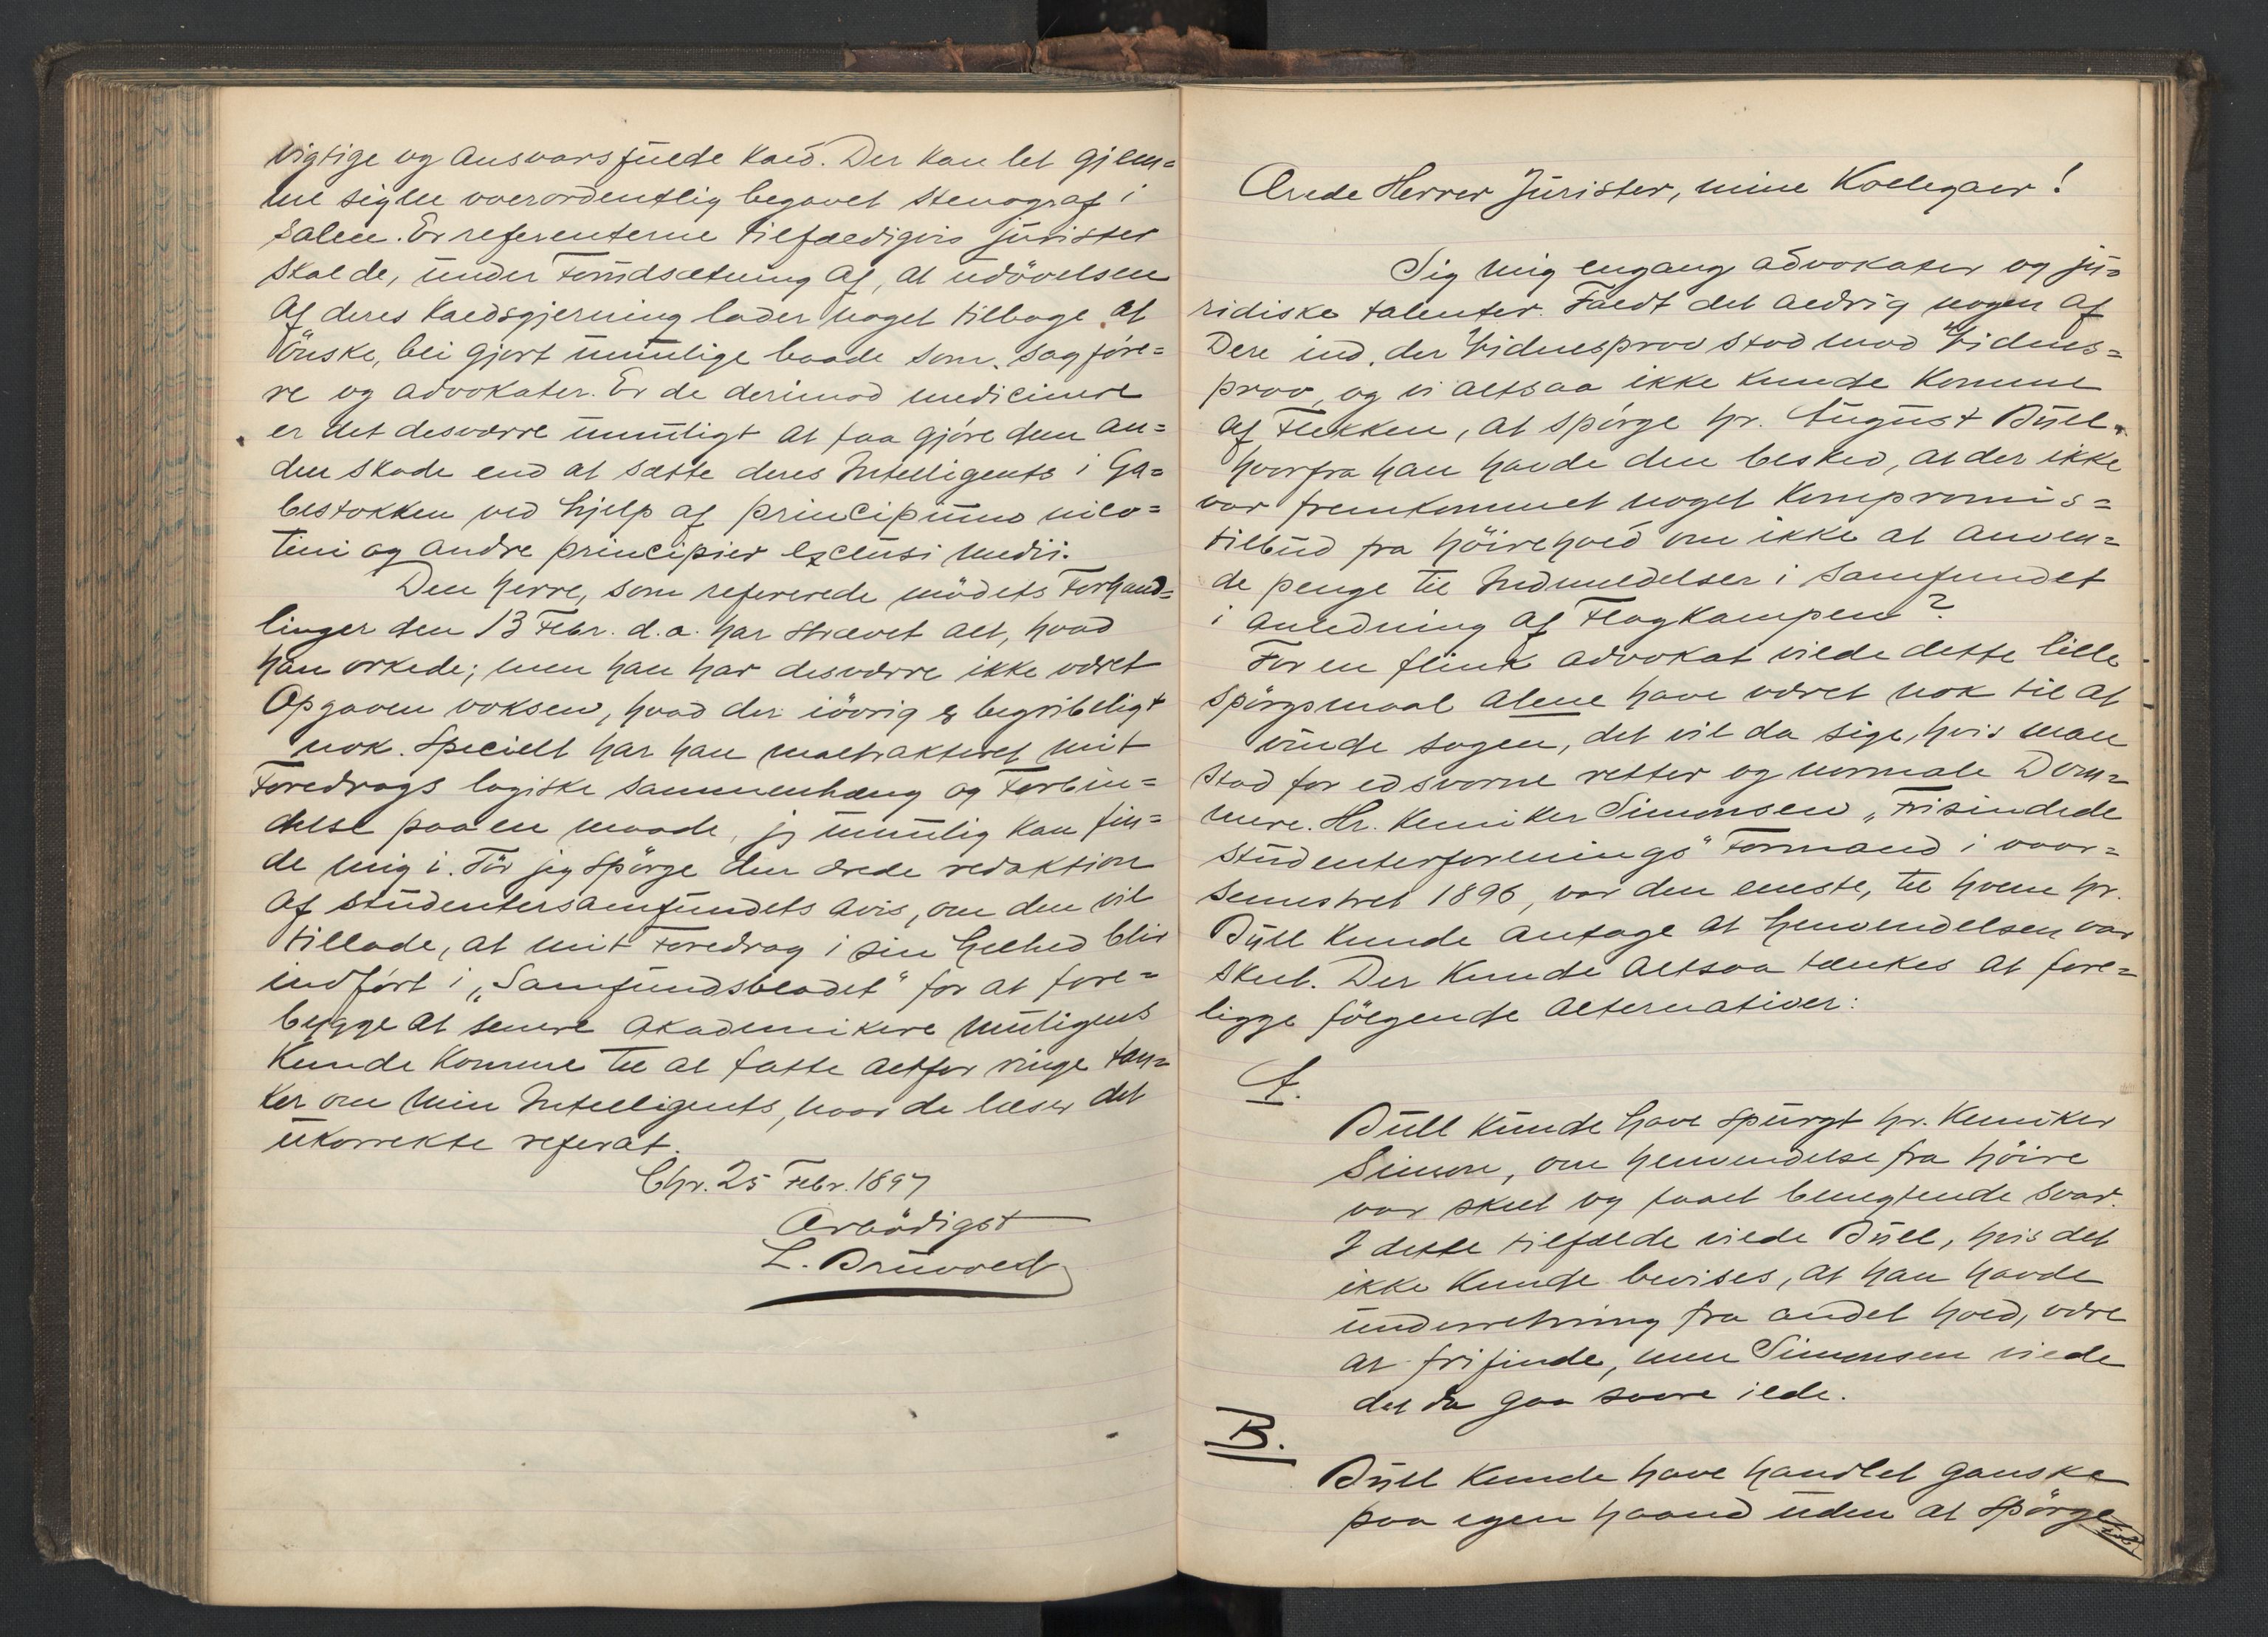 vigtige og ansvarsfulde kald. Der kan let gjem=
me sig en overordentlig begavet stenograf i
salen. Er referenterne tilfældigvis jurister
skal de, under Forudsætning af, at udövelsen
af deres kaldsgjerning lader noget tilbage at
önske, bli gjort umulige baade som sagföre=
re og advokater. Er de derimod medicinere
er det desværre umuligt at faa gjöre dem an=
den skade end at sætte deres Intelligents i Ga=
bestokken ved hjelp af principiums nico=
tini og andre principier exclusi medii.
Den herre, som refererede mödets Forhand=
linger den 13 Febr. d.a. har strævet alt, hvad
han orkede; men han har desværre ikke været
Opgaven voksen, hvad der iövrig er begribeligt
nok. Specielt har han maltrakteret mit
Foredrags logiske sammenhæng og Forbin=
delse paa en maade, jeg umulig kan fin=
de mig i. Tör jeg spörge den ærede redaktion
af studentersamfundets avis, om den vil
tillade, at mit Foredrag i sin helhed blir
indfört i „Samfundsbladet" for at fore=
bygge at senere akademikere muligens
kunde komme til at fatte altfor ringe tan=
ker om min Intelligents, naar de læser det
ukorrekte referat.
Chr. 25 Febr. 1897
Ærbödigst
L. Bruvold
Ærede Herrer Jurister, mine Kollegaer!
Sig mig engang advokater og ju=
ridiske talenter. Faldt det aldrig nogen af
Dere ind, der Vidnesprov stod mod Vidnes=
prov, og vi altsaa ikke kunde komme
af Flekken, at spörge hr. August Büll,
hvorfra han havde den besked, at der ikke
var fremkommet noget kompromis=
tilbud fra höirehold om ikke at anven=
de penge til Indmeldelser i samfundet
i anledning af Flagkampen?
For en flink advokat vilde dette lille
spörgsmaal alene have været nok til at
vinde sagen, det vil da sige, hvis man
stod for edsvorne retter og normale Dom=
mere. Hr. kemiker Simonsen „Frisindede
studenterforenings" Formand i vaar=
semestret 1896, var den eneste, til hvem hr.
Büll kunde antage at henvendelsen var
skeet. Der kunde altsaa tænkes at fore=
ligge fölgende alternativer:
A.
Büll kunde have spurgt hr. kemiker
Simon, om henvendelse fra höire
var skeet og faaet benegtende svar.
I dette tilfælde vilde Büll, hvis det
ikke kunde bevises, at han havde
underretning fra andet hold, være
at frifinde, men Simonsen vilde
det da gaa svare ilde.
B.
Büll kunde have handlet ganske
paa egen haand uden at spörge